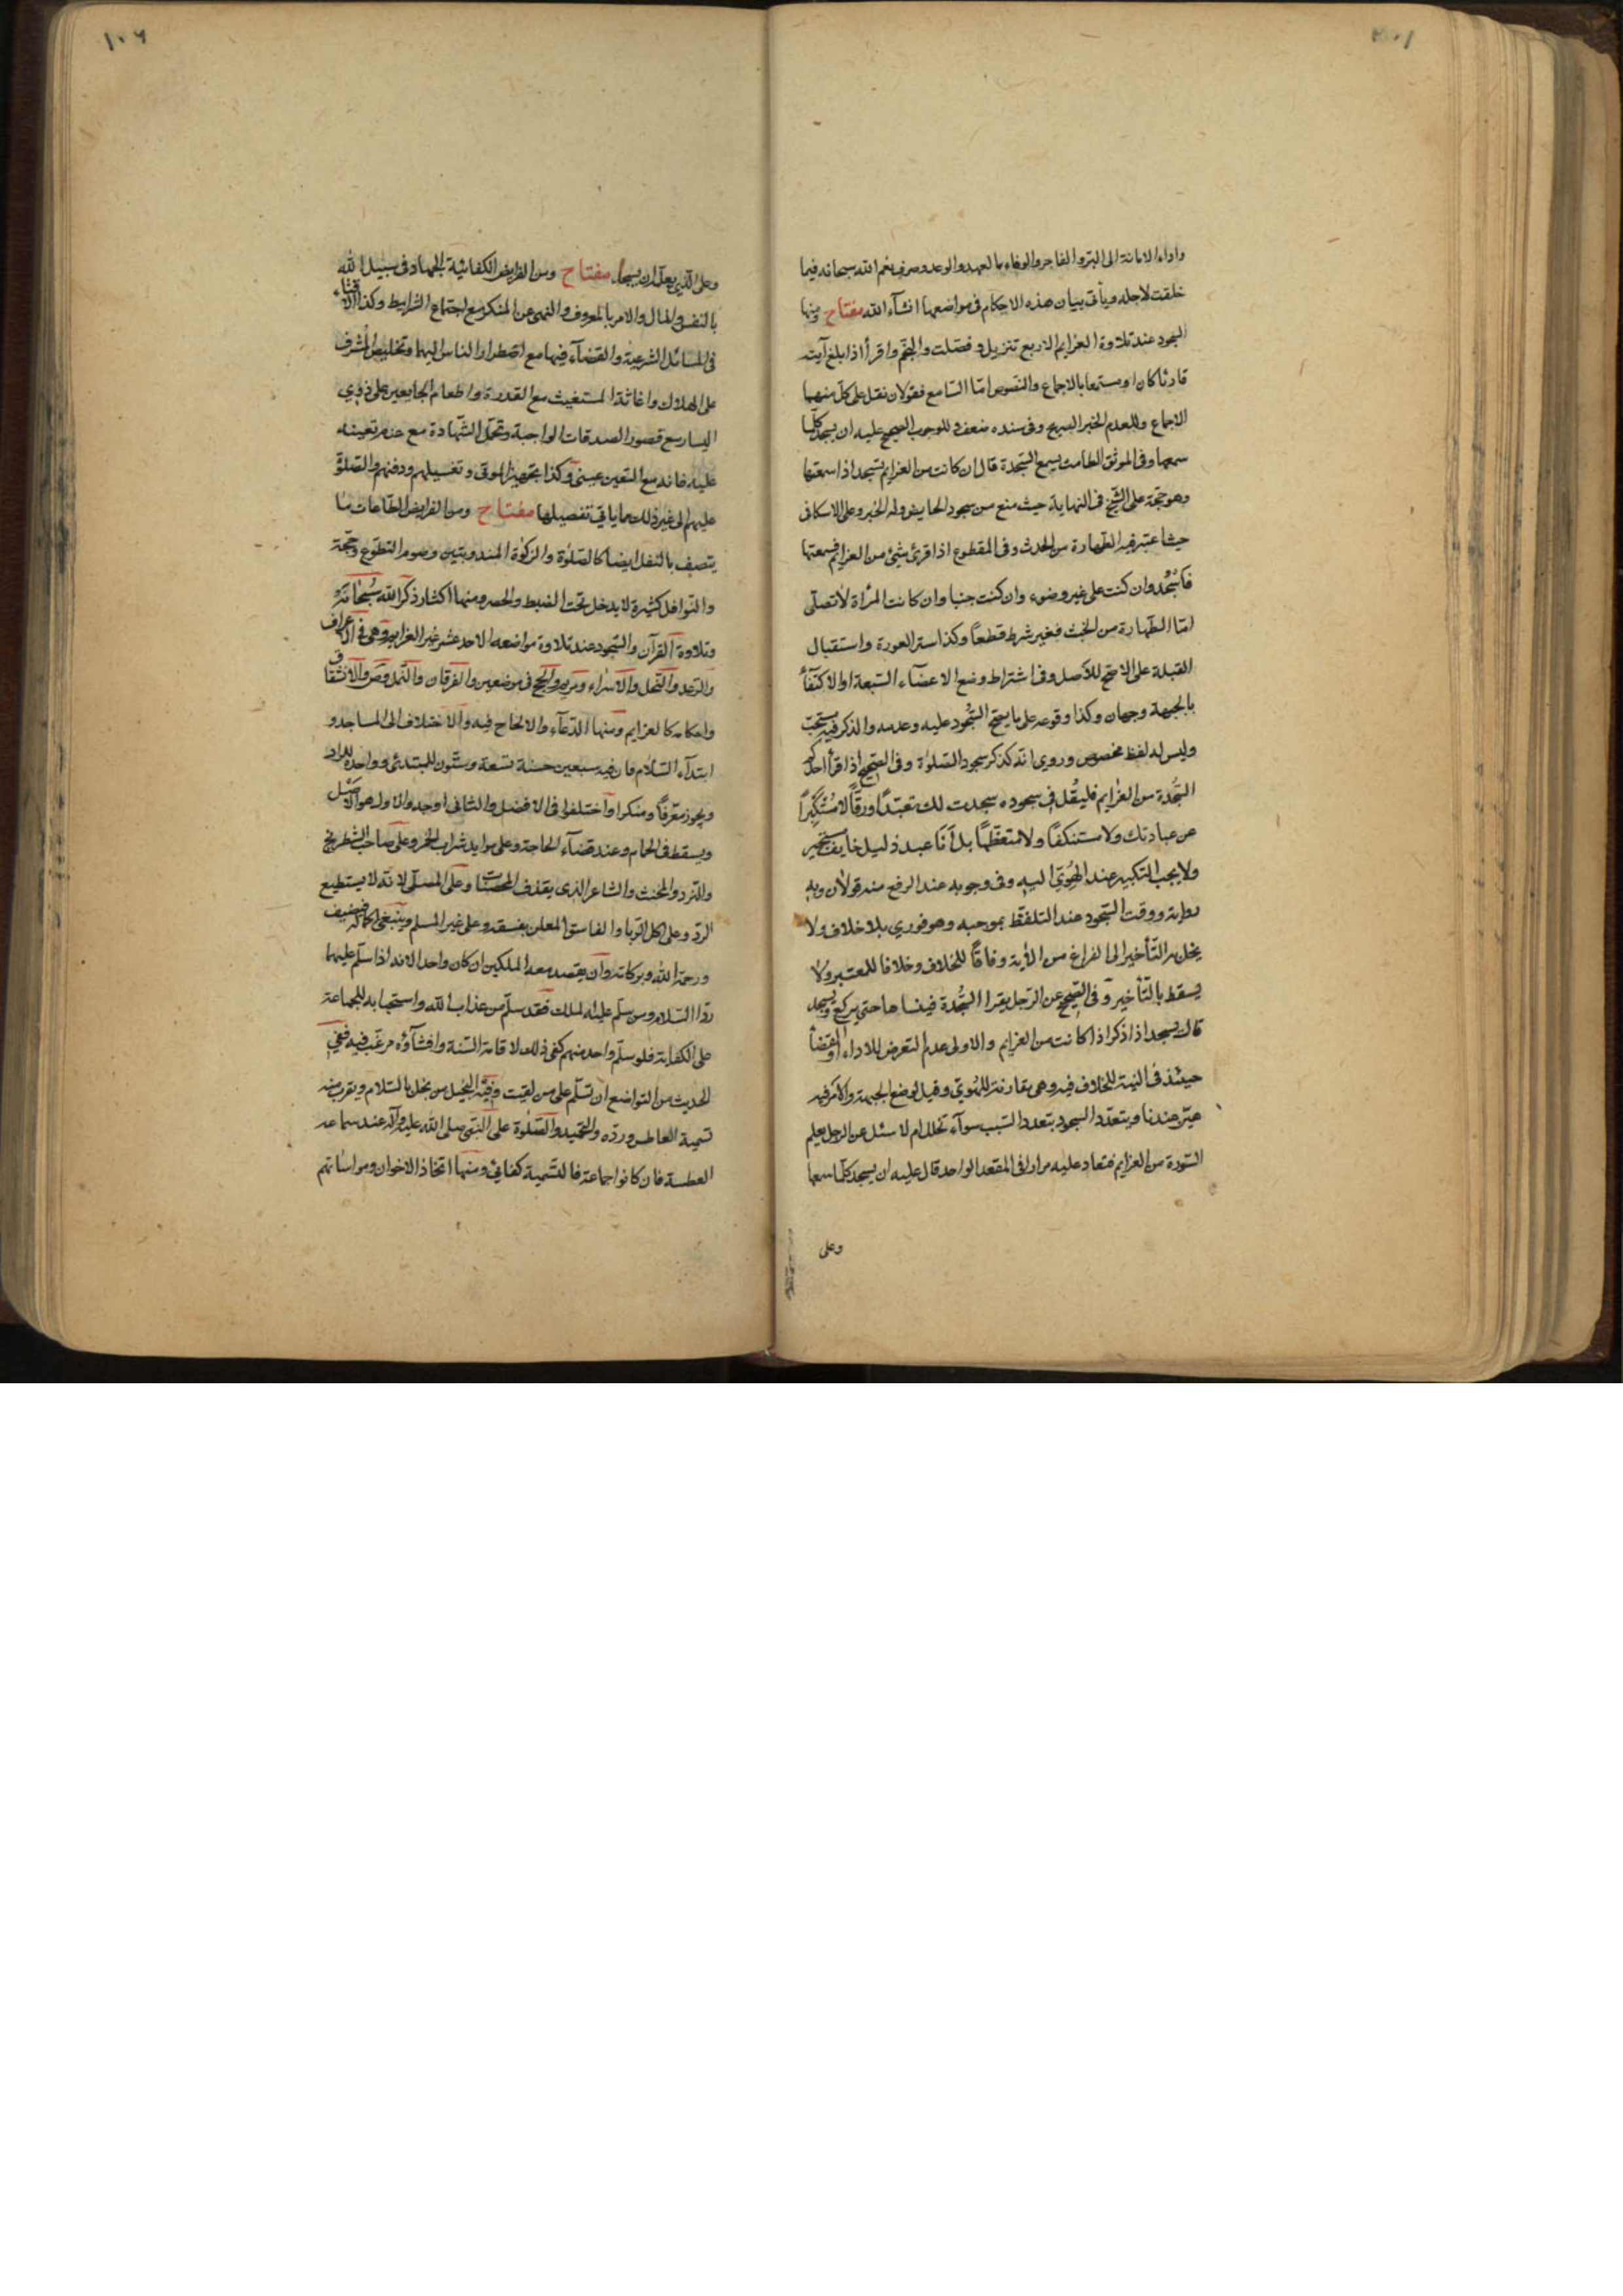 واداء الامانة الى البر والفاجر والوفاء بالعهد والوعد وصرف نعم الله سبحانه فيما
خلقت لاجله ويأتى بيان هذه الاحكام فى مواضعها انشآء الله مفتاح ومنها
السجود عند تلاوة العزايم الاربع تنزيل وفصّلت والنجم واقرأ اذا بلغ آيته
قارئا كان او مستمعا بالاجماع والنصوص امّا السّامع فقولان نقل على كلّ منهما
الاجماع وللعدم الخبر الصريح وفى سنده ضعف وللوجوب الصحيح عليه ان يسجد كلّما
سمعها وفى الموثق الطامث يسمع السّجدة قال ان كانت من العزايم تسجد اذا سمعتها
وهو حجّة على الشّيخ فى النهاية حيث منع من سجود الحايض وله الخبر وعلى الاسكافى
حيث اعتبر فيه الطّهارة من الحدث وفى المقطوع اذا قرئ شئ من العزايم فسمعتها
فاسْجُد وان كنت على غير وضوء وان كنت جنبا وان كانت المرأة لا تصلّى
امّا الطّهارة من الخبث فغير شرط قطعاً وكذا ستر العورة واستقبال
القبلة على الاصحّ للأصل وفى اشتراط وضع الاعضآء السّبعة او الاكتفآء
بالجبهة وجهان وكذا وقوعه على ما يصحّ السّجود عليه وعدمه والذكر فيه مستحبّ
وليس له لفظ مخصوص وروى انّه كذكر سجود الصّلوٰة وفى الصّحيح اذا قرأ احدكم
السّجدة من العزايم فليقُل فى سجوده سجدت لك تعبّداً ورقّاً لا مُسْتَكْبِراً
عن عبادتك ولا مستنكفاً ولا متعظّماً بل أنا عبد ذليل خايف مستجير
ولا يجب التكبير عند الهُوِيّ اليه وفى وجوبه عند الرفع منه قولان وبه
رواية ووقت السّجود عند التلفّظ بموجبه وهو فوري بلا خلاف ولا
يخل به التّأخير الى الفراغ من الأية وفاقاً للخلاف وخلافا للمعتبر ولا
يسقط بالتّأخير وفى الصّحيح عن الرّجل يقرا السّجدة فينساها حتى يركع ويسجد
قال يسجد اذا ذكر اذا كانت من العزايم والاولى عدم التعرض للاداء او القضآء
حينئذ فى النيّة للخلاف فيه وهى مقارنة للهُويّ وقيل لوضع الجبهة والأمر فيه
هيّن عندنا ويتعدّد السجود بتعدد السّبب سوآء تخلل ام لا سئل عن الرجل يعلم
السّورة من العزايم فتعاد عليه مرارا فى المقعد الواحد قال عليه ان يسجد كلّما سمعها
وعلى
١٠٦
وعلى الّذى يعلّمه ان يسجد مفتاح ومن الفرايض الكفائيّة الجهاد فى سبيل الله
بالنفس والمال والامر بالمعروف والنهى عن المنكر مع اجتماع الشرايط وكذا الافتاء
فى المسائل الشرعيّة والقضآء فيها مع اضطرار الناس اليها وتخليص المشرف
على الهلاك واغاثة المستغيث مع القدرة واطعام الجايعين على ذوي
اليسار مع قصور الصدقات الواجبة وتحمّل الشّهادة مع عدم تعيّنه
عليه فانه مع التعين عينىّ وكذا تجهيز الموتى وتغسيلهم ودفنهم والصّلوة
عليهم الى غير ذلك مما ياتى تفصيلها مفتاح ومن الفرايض الطّاعات ما
يتصف بالنفل ايضا كالصّلوٰة والزكوٰة المندوبتين وصوم التطوّع وحجّه
والنّوافل كثيرة لا يدخل تحت الضبط والحصر ومنها اكثار ذكر الله سُبحانَه
وتلاوة القرآن والسّجود عند تلاوة مواضعه الاحد عشر غير العزايم وهى فى الاعراف
والرّعد والنّحل والاسراء ومريم والحجّ فى موضعين والفرقان والنّمل وص والانشقاق
واحكامه كالعزايم ومنها الدّعآء والالحاح فيه والاختلاف الى المساجد و
ابتدآء السّلام فان فيه سبعين حسنة تسعة وستّون للمبتدئ وواحدة للراد
ويجوز معرّفاً ومنكرا واختلفوا فى الافضل والثانى اوجه والاول هو الاصْل
ويسقط فى الحمام وعند قضآء الحاجة وعلى موايد شراب الخمر وعلى صاحب الشطرنج
والنّرد والمخنث والشاعر الذى يقذف المحصنات وعلى المصلّى لانّه لا يستطيع
الردّ وعلى اكل الرّبا والفاسق المعلن بفسقه وعلى غير المسلم وينبغى اكماله فيضيف
ورحمة الله وبركاته وان يقصد معه الملكين ان كان واحدا لانه اذا سلّم عليهما
ردّا السّلام ومن سلّم عليه الملك فقد سلّم من عذاب الله واستحبابه للجماعة
على الكفاية فلو سلّم واحد منهم كفى ذلك لاقامة السّنة وافشآؤه مرغّب فيه ففي
الحديث من التواضع ان تسلّم على من لقيت وفيه البخيل من بخل بالسّلام ويقرب منه
تسمية العاطس وردّه والتحميد والصّلوٰة على النّبى صلى الله عليه وآله عند سماعه
العطسة فان كانوا جماعة فالتسمية كفائي ومنها اتخاذ الاخوان ومواساتهم